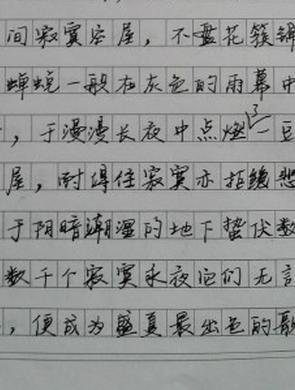 间寂寞空屋，不羡花簇锦
蝉蜕一般在灰色的雨幕中
，于漫漫长夜中点燃了一豆
屋，耐得住寂寞亦拒绝悲
于阴暗潮湿的地下蛰伏数
数千个寂寞永夜它们无言
，便成为盛夏最出色的歌